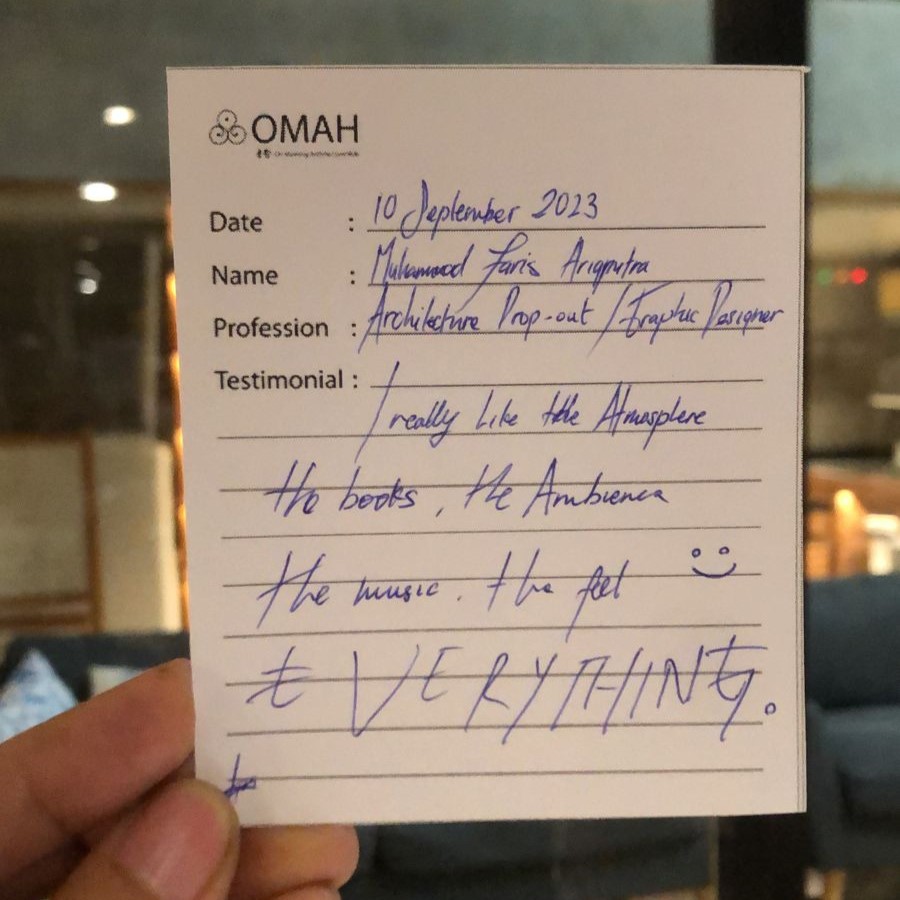 OMAH
Date : 10 September 2023
Name : Muhammad Faris Ariqputra
Profession : Architecture Drop-out / Graphic Designer
Testimonial :
I really like the Atmosphere
the books, the Ambience
the music. the feel
EVERYTHING.